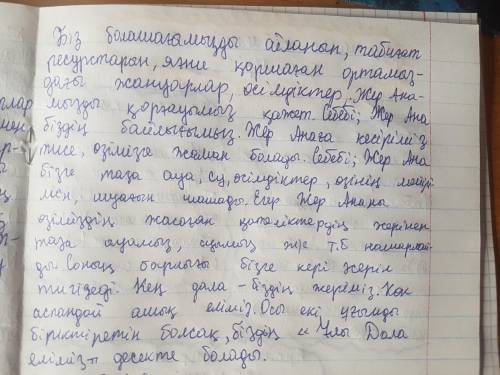 Біз болашағамызды айланып, табиғат
ресурстарын, яғни қоршаған ортамыз-
дағы жануарлар, өсімдіктер, Жер Ана-
мызды қорғауымыз қажет. Себебі; Жер Ана
біздің байлығымыз. Жер Анаға кесіріміз
тисе, өзімізге жаман болады. Себебі; Жер Ана
бізге таза ауа, су, өсімдіктер, өзінің мейірі
мен, шуағын шашады. Егер Жер Ананы
өзіміздің жасаған қателіктердің жерінен
таза ауамыз, суымыз ж/е т.б нашарлай-
ды. Соның барлығы бізге кері әсерін
тигізеді. Кең дала - біздің жереміз. Көк
аспандай ашық еліміз. Осы екі ұғымды
біріктіретін болсақ, біздің Ұлы Дала
елімізті десекте болады.